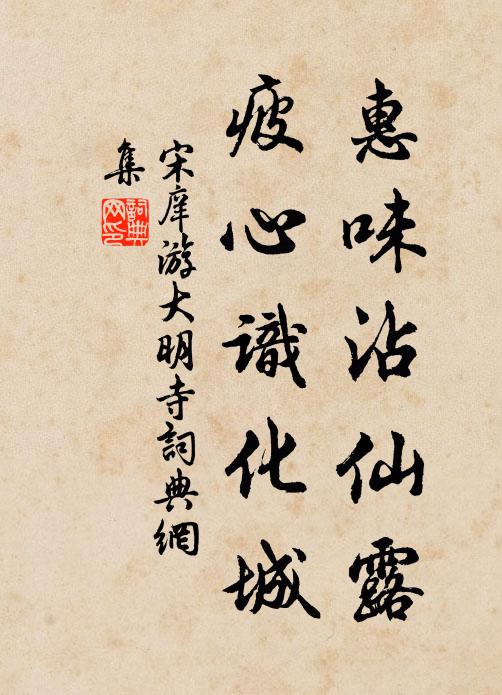 惠味沾仙露
疲心識化城
宋庠游大明寺詞典網
集
詞典
网印